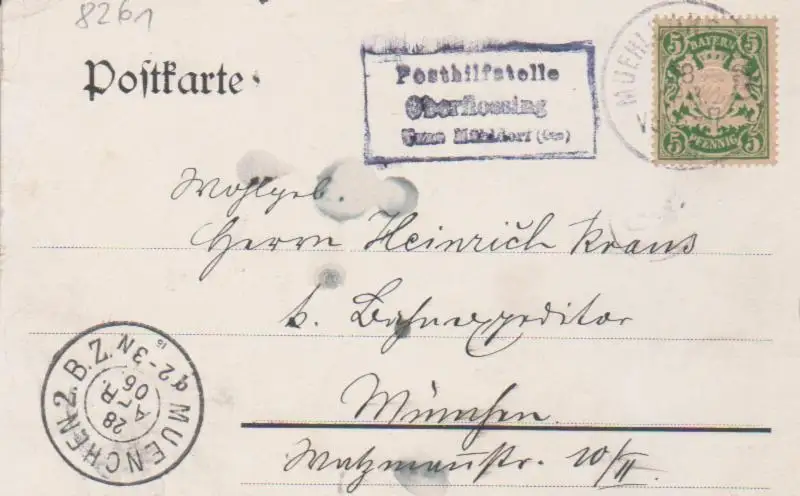 8261
Postkarte
Posthilfstelle
Oberflossing
Taxe Mühldorf (Obb)
5 BAYERN 5
5 PFENNIG 5
MUEHL
Wohlgeb.
Herrn Heinrich Kraus
k. Bahnexpeditor
München
Watzmannstr. 10/II
MUENCHEN 2. B.Z.
2-3 N
28
APR.
06